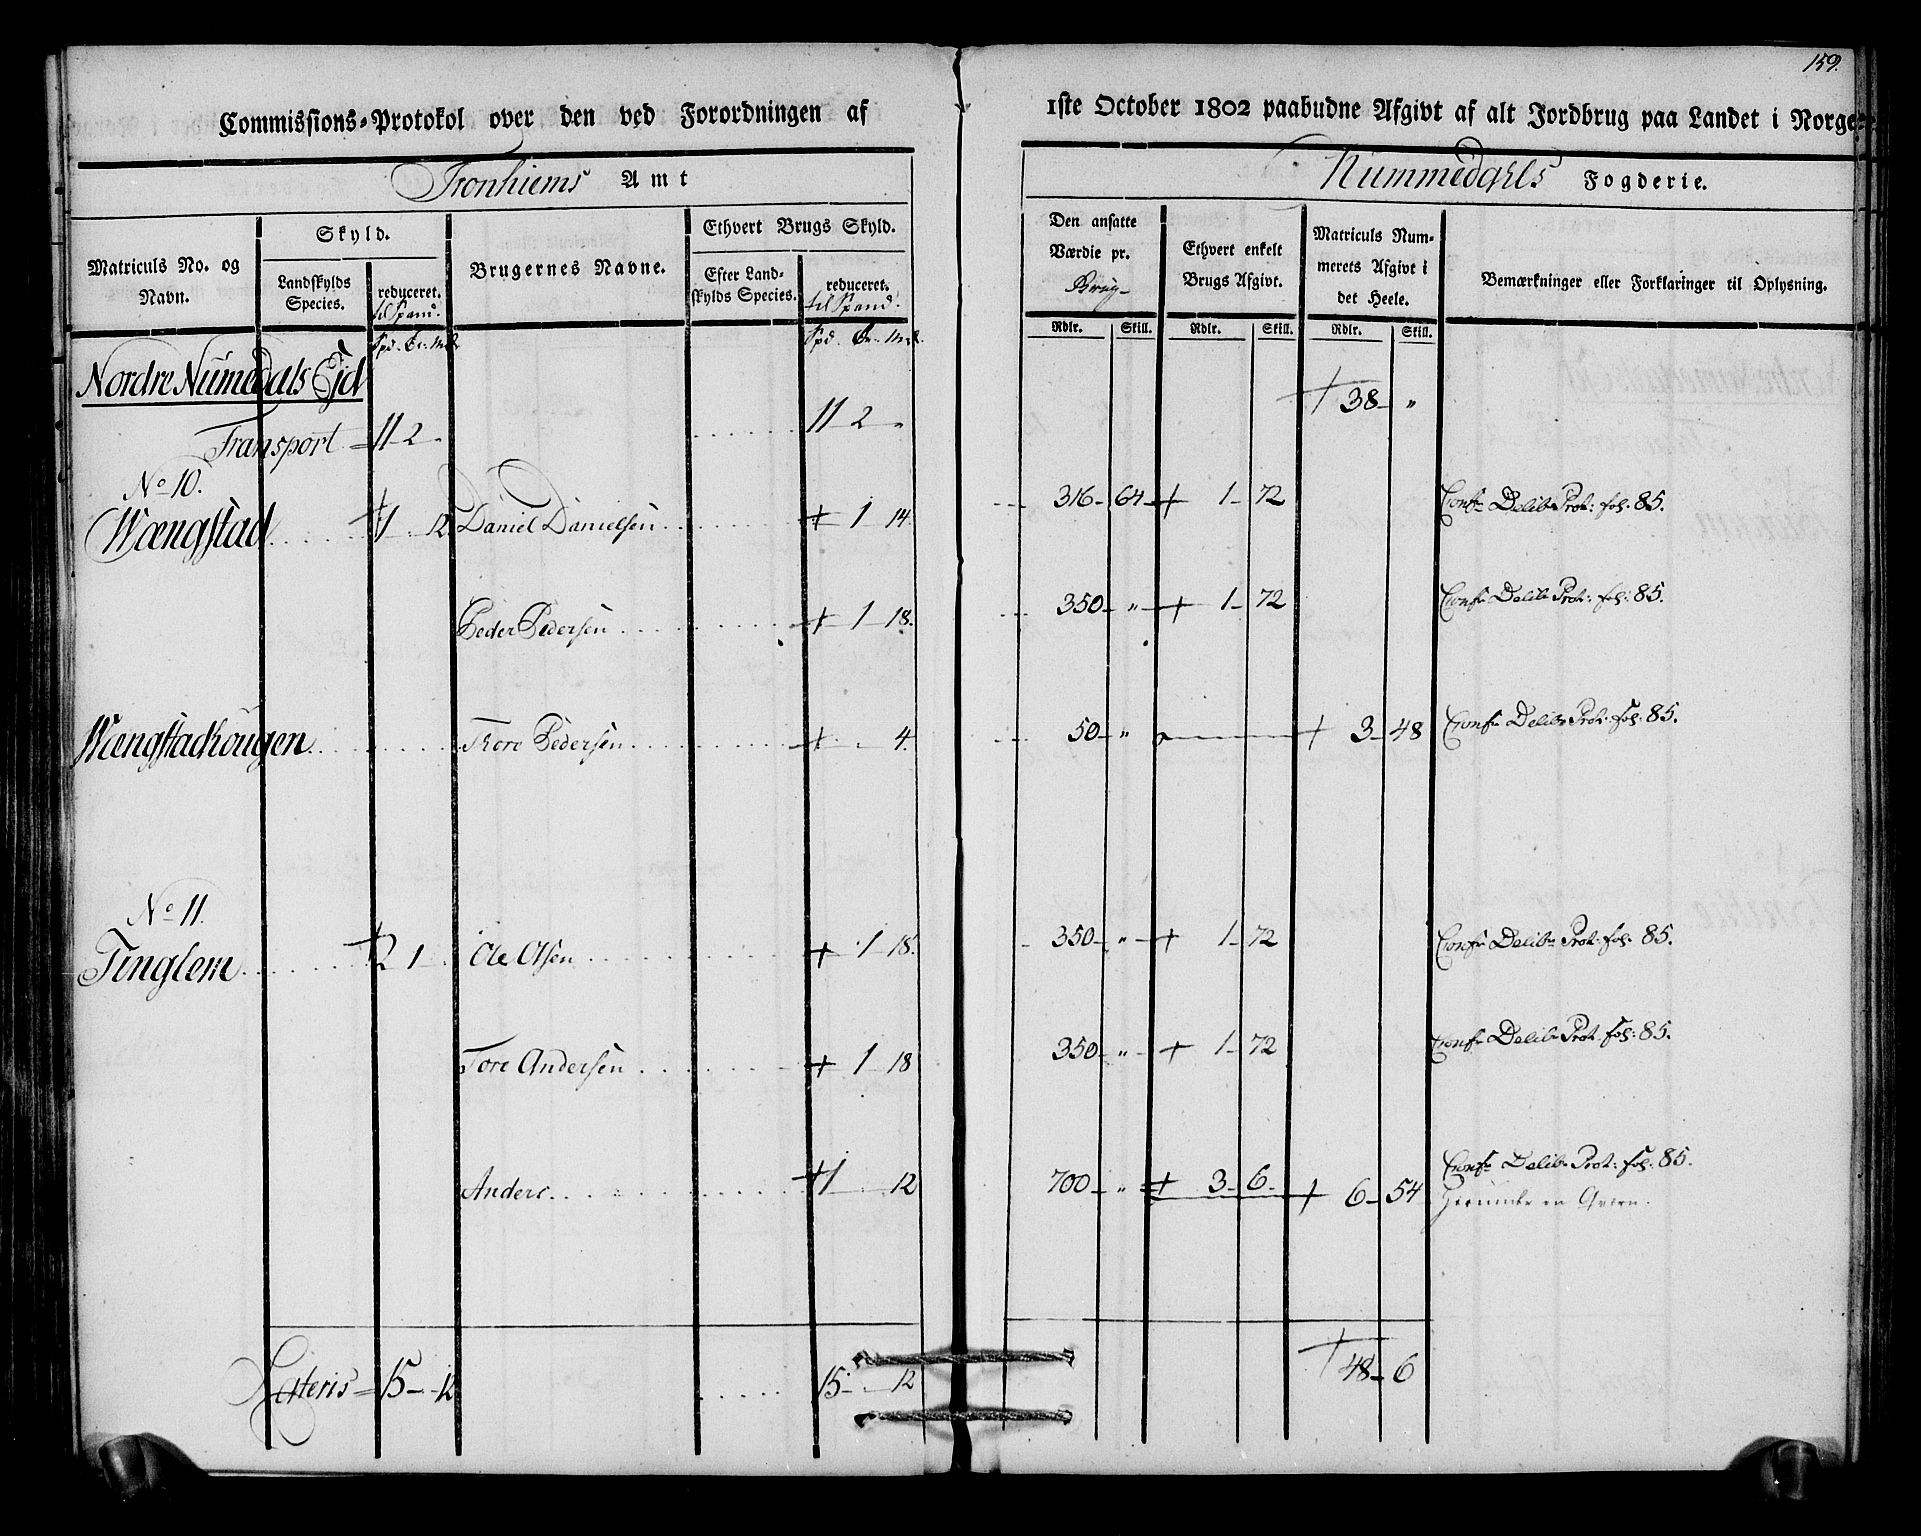 159.
Commissions-Protokol over den ved Forordningen af 1ste October 1802 paabudne Afgivt af alt Jordbrug paa Landet i Norge
Tronhiems Amt
Nummedahls Fogderie.
Matriculs No. og Navn.
Skyld.
Landskylds Species.
reduceret. til Spand.
Brugernes Navne.
Ethvert Brugs Skyld.
Efter Landskylds Species.
reduceret. til Spand.
Den ansatte Værdie pr. Brug
Ethvert enkelt Brugs Afgivt.
Matriculs Nummerets Afgivt i det Heele.
Bemærkninger eller Forklaringer til Oplysning.
Rdlr. Skill. Rdlr. Skill. Rdlr. Skill.
Nordre Numedals Fjd
Transport = 11 - 2 - " 11 - 2 " + 38 - "
No 10.
Wængstad + 1 - 12 Daniel Danielsen + 1 - 14 316 - 64 + 1 - 72 Confr Delibr Prot: fol. 85.
Peder Pedersen + 1 - 18. 350 - " + 1 - 72 Confr Delibr Prot: fol: 85.
Wængstadhougen Thore Pedersen + 4. 50 - " + 3 - 48 Confr Delibr Prot: fol: 85.
No 11.
Tinglem + 2 1 - Ole Olsen + 1 - 18. 350 - " + 1 - 72 Confr Delibr Prot: fol. 85.
Tore Andersen + 1 - 18 350 - " + 1 - 72 Confr Delibr Prot. fol: 85.
Anders + 1 12 700 - " + 3 - 6 - + 6 - 54 Confr Delibr Prot: fol: 85.
Herunder en Qværn.
Lateris = 15 - - 12 15 - 12 + 48 - 6